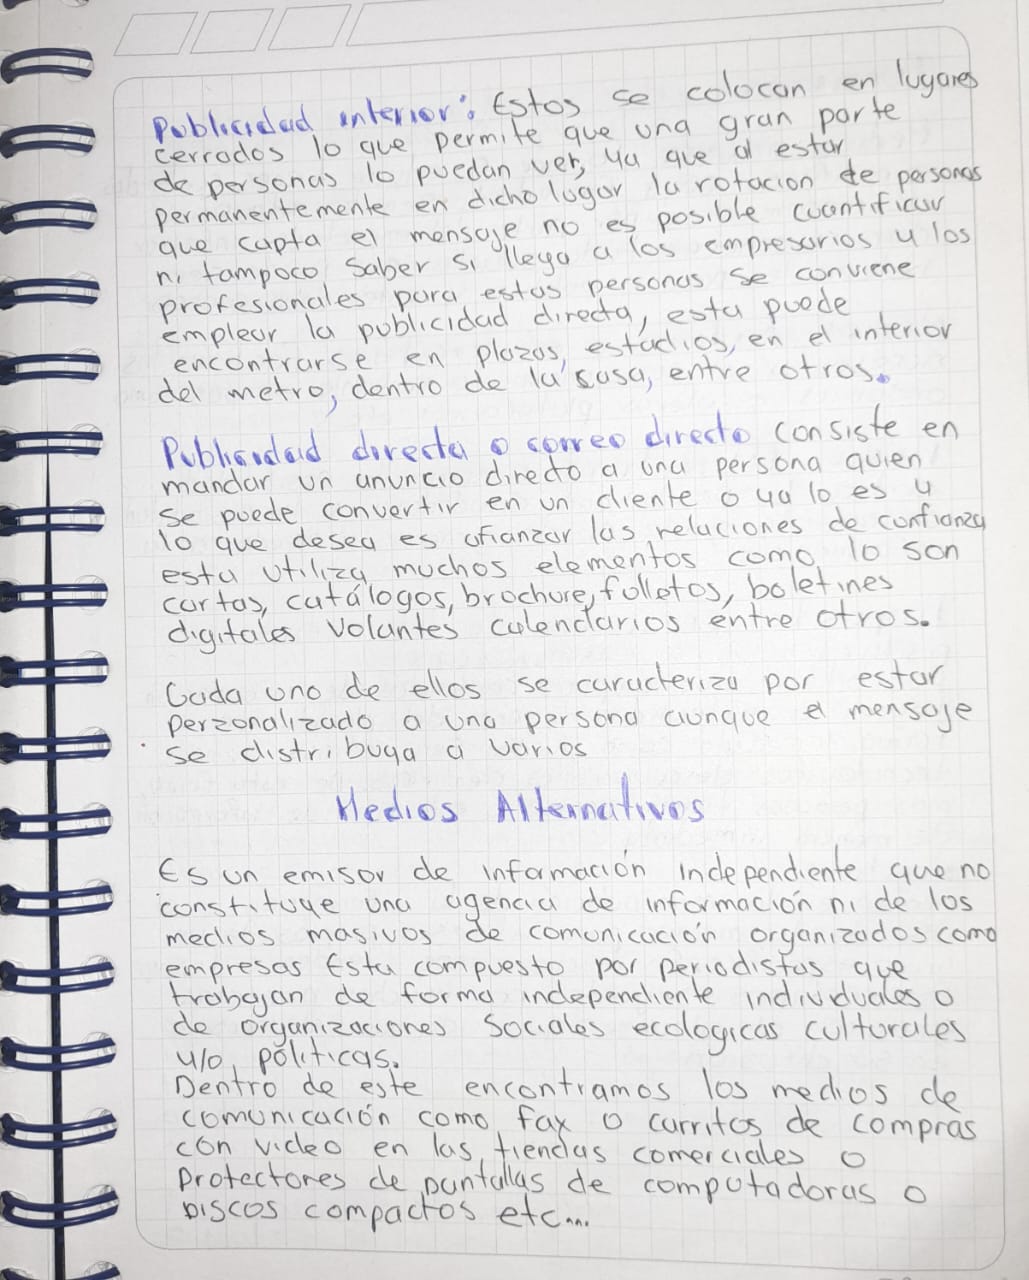 Publicidad interior: Estos se colocan en lugares
cerrados lo que permite que una gran parte
de personas lo puedan ver, ya que al estar
permanentemente en dicho lugar la rotacion de personas
que capta el mensaje no es posible cuantificar
ni tampoco saber si llega a los empresarios y los
profesionales para estas personas se conviene
emplear la publicidad directa, esta puede
encontrarse en plazas, estadios, en el interior
del metro, dentro de la casa, entre otros.
Publicidad directa o correo directo consiste en
mandar un anuncio directo a una persona quien
se puede convertir en un cliente o ya lo es y
lo que desea es afianzar las relaciones de confianza
esta utiliza muchos elementos como lo son
cartas, catálogos, brochure, folletos, boletines
digitales volantes calendarios entre otros.
Cada uno de ellos se caracteriza por estar
perzonalizado a una persona aunque el mensaje
se distribuya a varios
Medios Alternativos
Es un emisor de información independiente que no
constituye una agencia de información ni de los
medios masivos de comunicación organizados como
empresas Esta compuesto por periodistas que
trabajan de forma independiente individuales o
de organizaciones sociales ecologicas culturales
y/o políticas.
Dentro de este encontramos los medios de
comunicación como fax o carritos de compras
con video en las tiendas comerciales o
protectores de pantallas de computadoras o
Discos compactos etc...